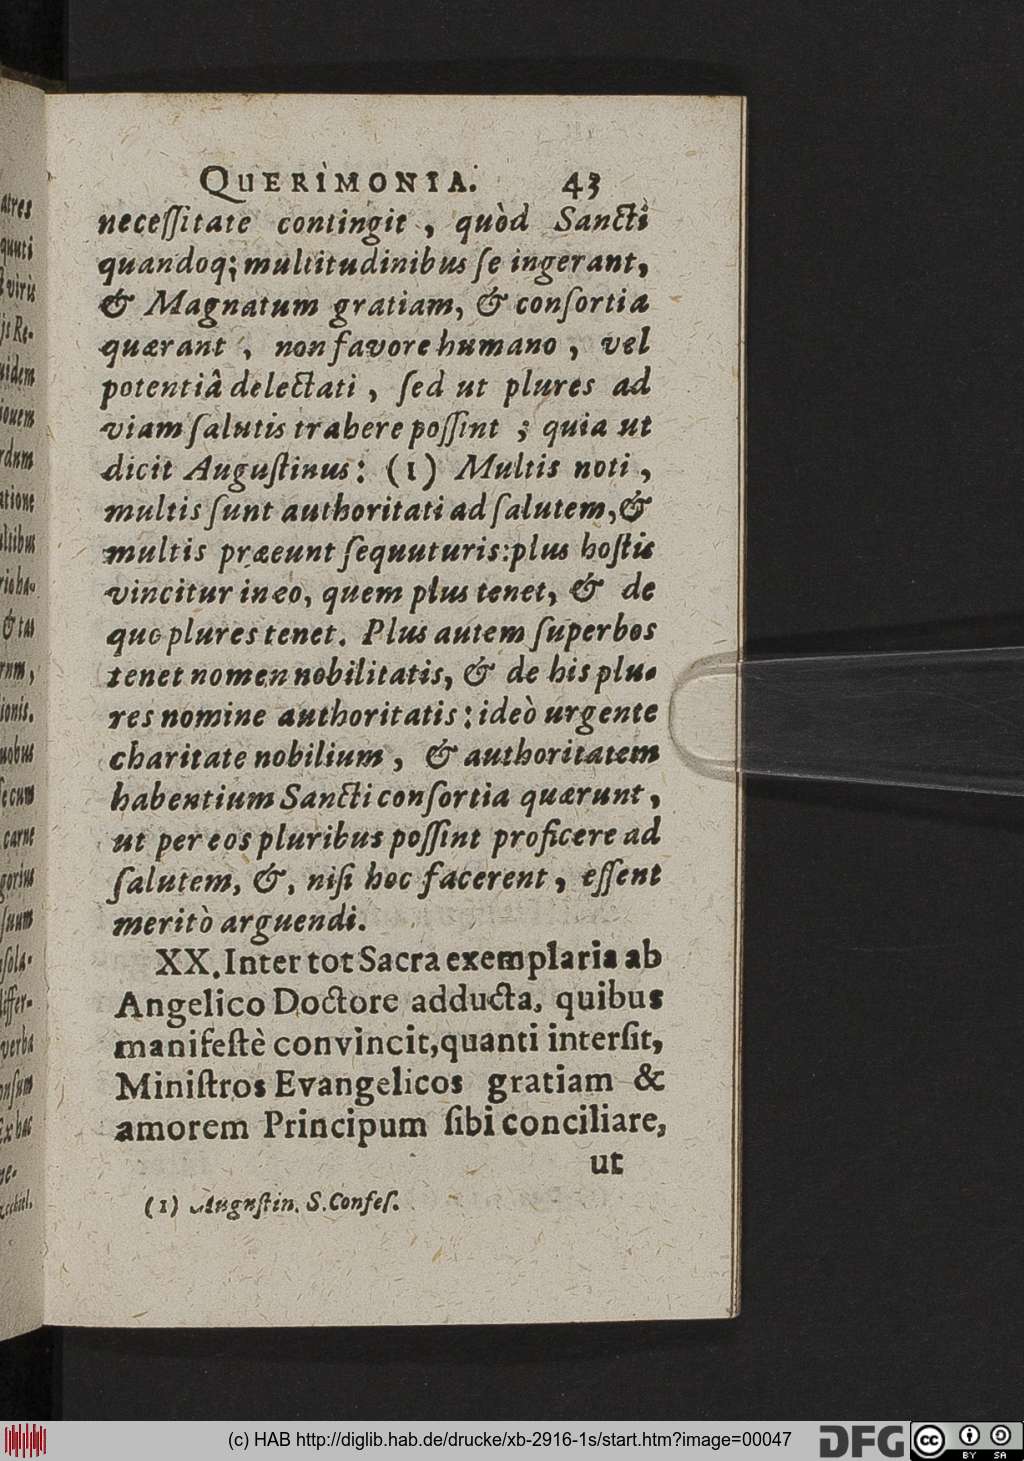 QUERIMONIA. 43
neceſſitate contingit, quòd Sancti
quandoq; multitudinibus ſe ingerant,
& Magnatum gratiam, & conſortia
quærant, non favore humano, vel
potentiâ delectati, ſed ut plures ad
viam ſalutis trahere poſſint; quia ut
dicit Auguſtinus: (1) Multis noti,
multis ſunt authoritati ad ſalutem, &
multis præeunt ſequuturis: plus hoſtis
vincitur in eo, quem plus tenet, & de
quo plures tenet. Plus autem ſuperbos
tenet nomen nobilitatis, & de his plu-
res nomine authoritatis: ideò urgente
charitate nobilium, & authoritatem
habentium Sancti conſortia quærunt,
ut per eos pluribus poſſint proficere ad
ſalutem, &, niſi hoc facerent, eſſent
meritò arguendi.
XX. Inter tot Sacra exemplaria ab
Angelico Doctore adducta, quibus
manifeſtè convincit, quanti interſit,
Miniſtros Evangelicos gratiam &
amorem Principum ſibi conciliare,
ut
(1) Auguſtin. S. Confeſ.
(c) HAB http://diglib.hab.de/drucke/xb-2916-1s/start.htm?image=00047
DFG cc BY SA